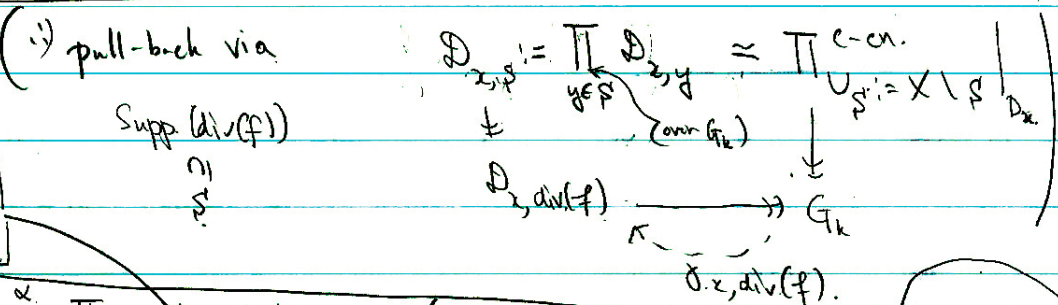 (∵) pull-back via D_{x,S} := ∏_{y∈S} D_{x,y} ≃ ∏^{c-cn.}_{U_S := X \ S} |_{D_x}
(over G_k)
Supp (div(f))
∩|
S
D_{x,div(f)} ↠ G_k
γ_{x,div(f)}.
α